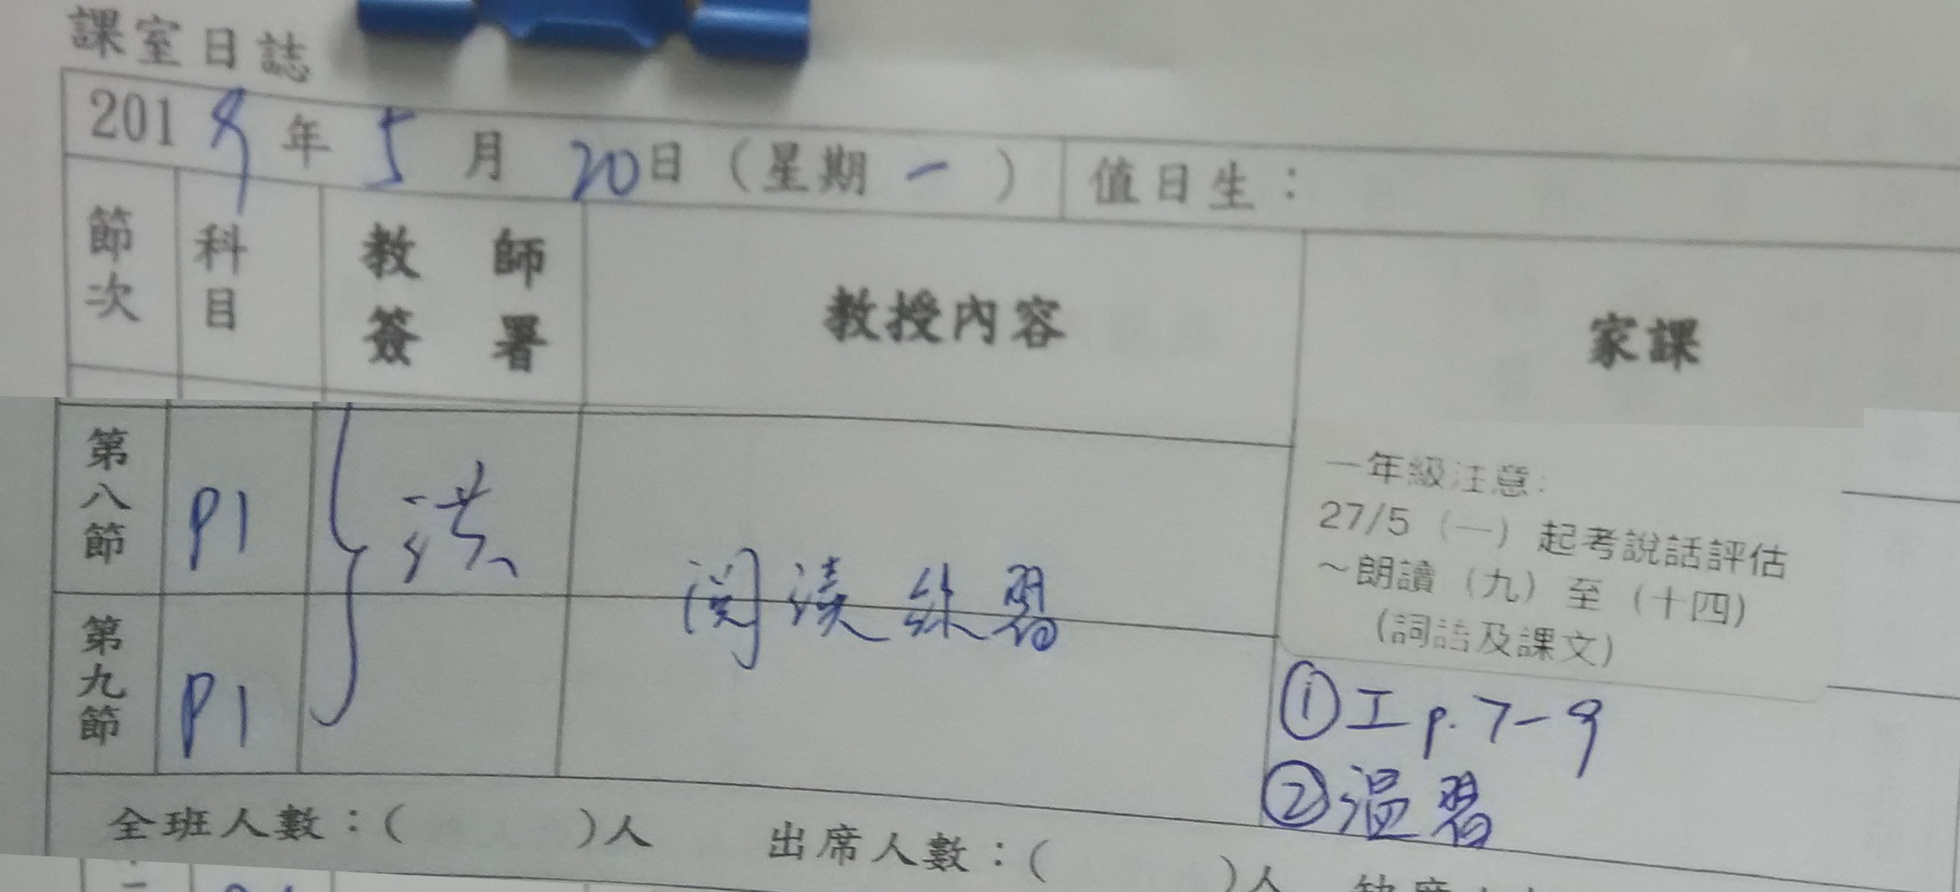 課室日誌
2019年5月20日(星期一) 值日生：
節次 科目 教師簽署 教授內容 家課
第八節 P1 洪 閱讀練習
一年級注意:
27/5 (一) 起考說話評估
~朗讀 (九) 至 (十四)
(詞語及課文)
第九節 P1
①工 p.7-9
②溫習
全班人數：( )人 出席人數：( )人